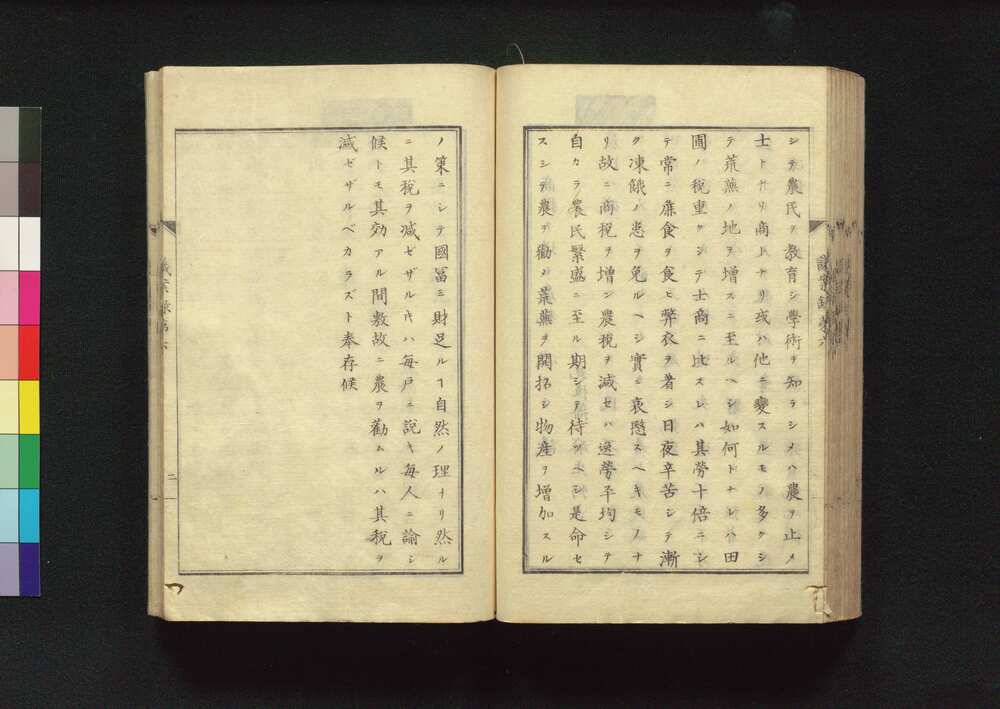 シテ農民ヲ教育シ學術ヲ知ラシメハ農ヲ止メ
士トナリ商トナリ或ハ他ニ變スルモノ多クシ
テ荒蕪ノ地ヲ增スニ至ルヘシ如何トナレハ田
圃ノ稅重クシテ士商ニ比スレハ其勞十倍ニシ
テ常ニ麁食ヲ食ヒ弊衣ヲ著シ日夜辛苦シテ漸
ク凍餓ノ患ヲ免ルヘシ實ニ哀愍スヘキモノナ
リ故ニ商稅ヲ增シ農稅ヲ減セハ逸勞平均シテ
自カラ農民繁盛ニ至ル期シテ待ツヘシ是命セ
スシテ農ヲ勸メ荒蕪ヲ開拓シ物產ヲ增加スル
ノ策ニシテ國冨ミ財足ルヿ自然ノ理ナリ然ル
ニ其稅ヲ減ゼザルキハ每戶ニ說キ每人ニ諭シ
候トモ其効アル間敷故ニ農ヲ勸ムルハ其稅ヲ
減ゼザルベカラズト奉存候
二